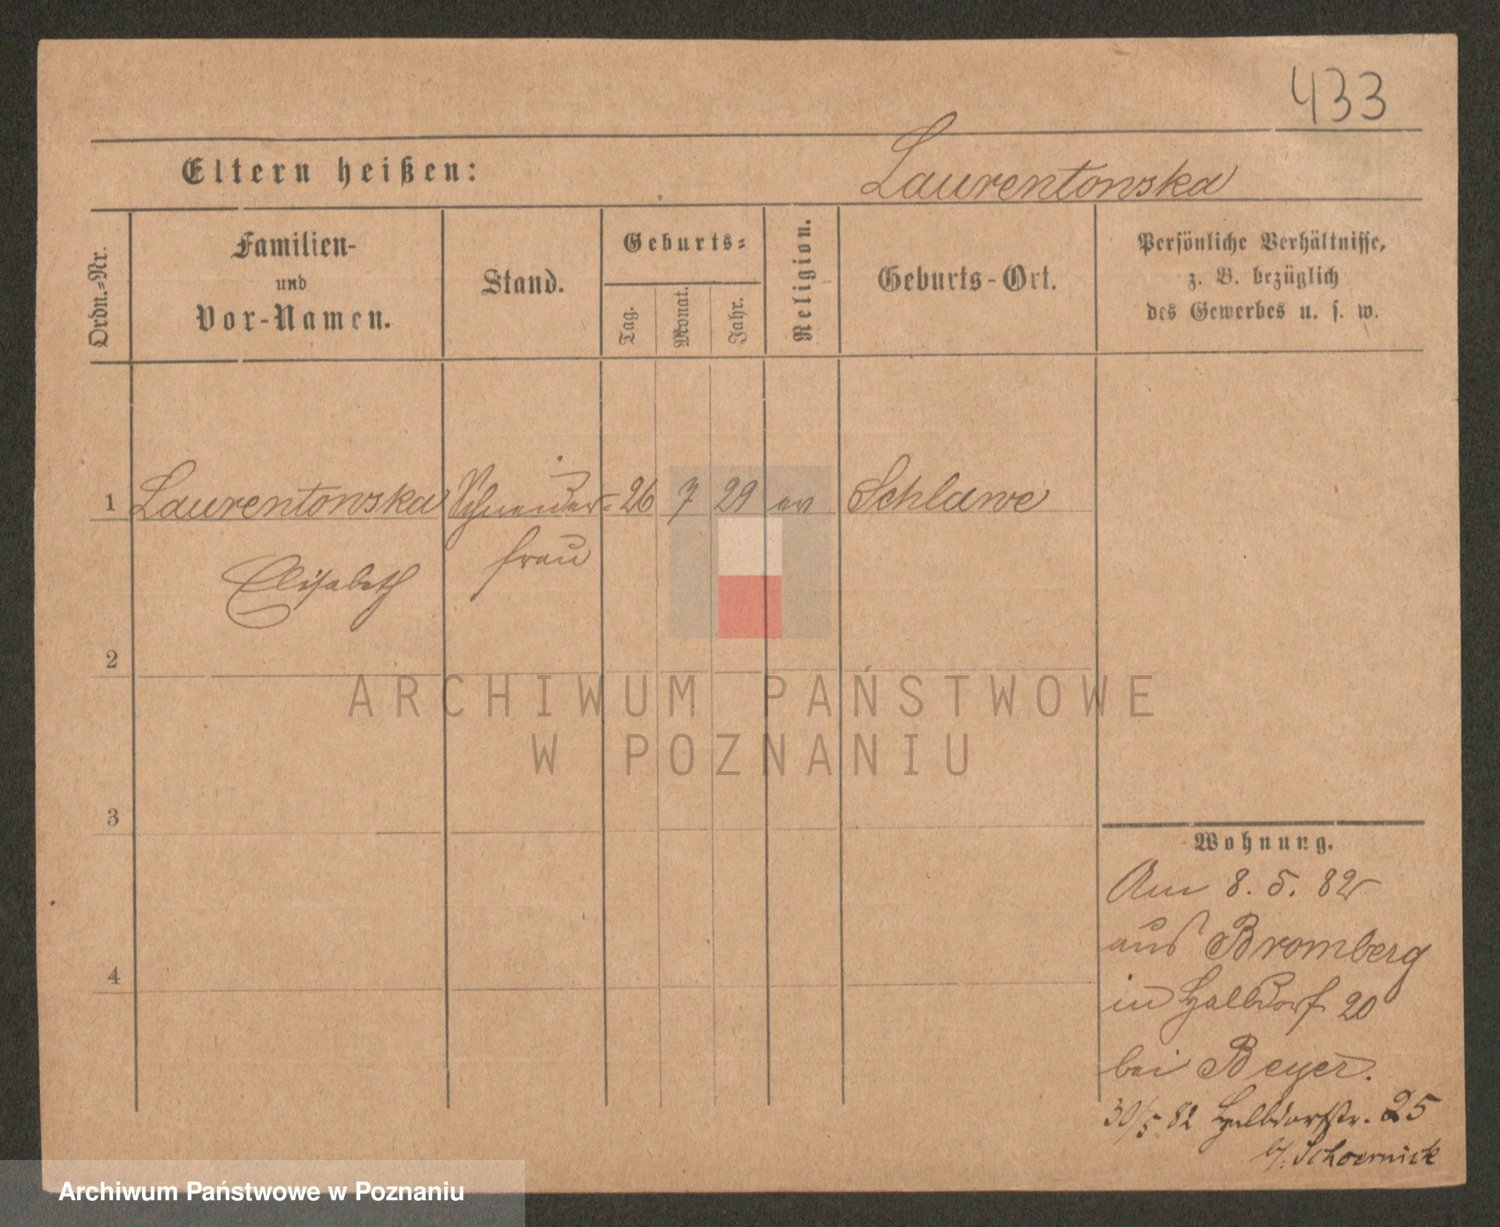 433
Eltern heißen:
Laurentowska
Ordn.-Nr.
Familien-
und
Vor-Namen.
Stand.
Geburts-
Tag.
Monat.
Jahr.
Religion.
Geburts-Ort.
Persönliche Verhältnisse,
z. B. bezüglich
des Gewerbes u. s. w.
1 Laurentowska Schneider- 26 7 29 ev Schlawe
Elisabeth frau
2
ARCHIWUM PAŃSTWOWE
W POZNANIU
3
4
Wohnung.
Am 8. 5. 82
aus Bromberg
in Halbdorf 20
bei Beyer.
30/5 82 Halbdorfstr. 25
b/.
Archiwum Państwowe w Poznaniu